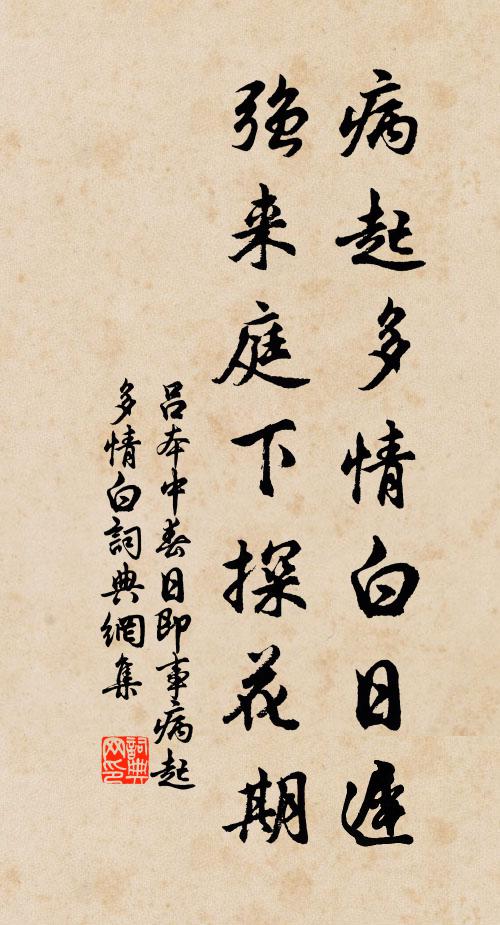 病起多情白日遲
强来庭下探花期
吕本中春日即事病起
多情白詞典網集
詞典网印